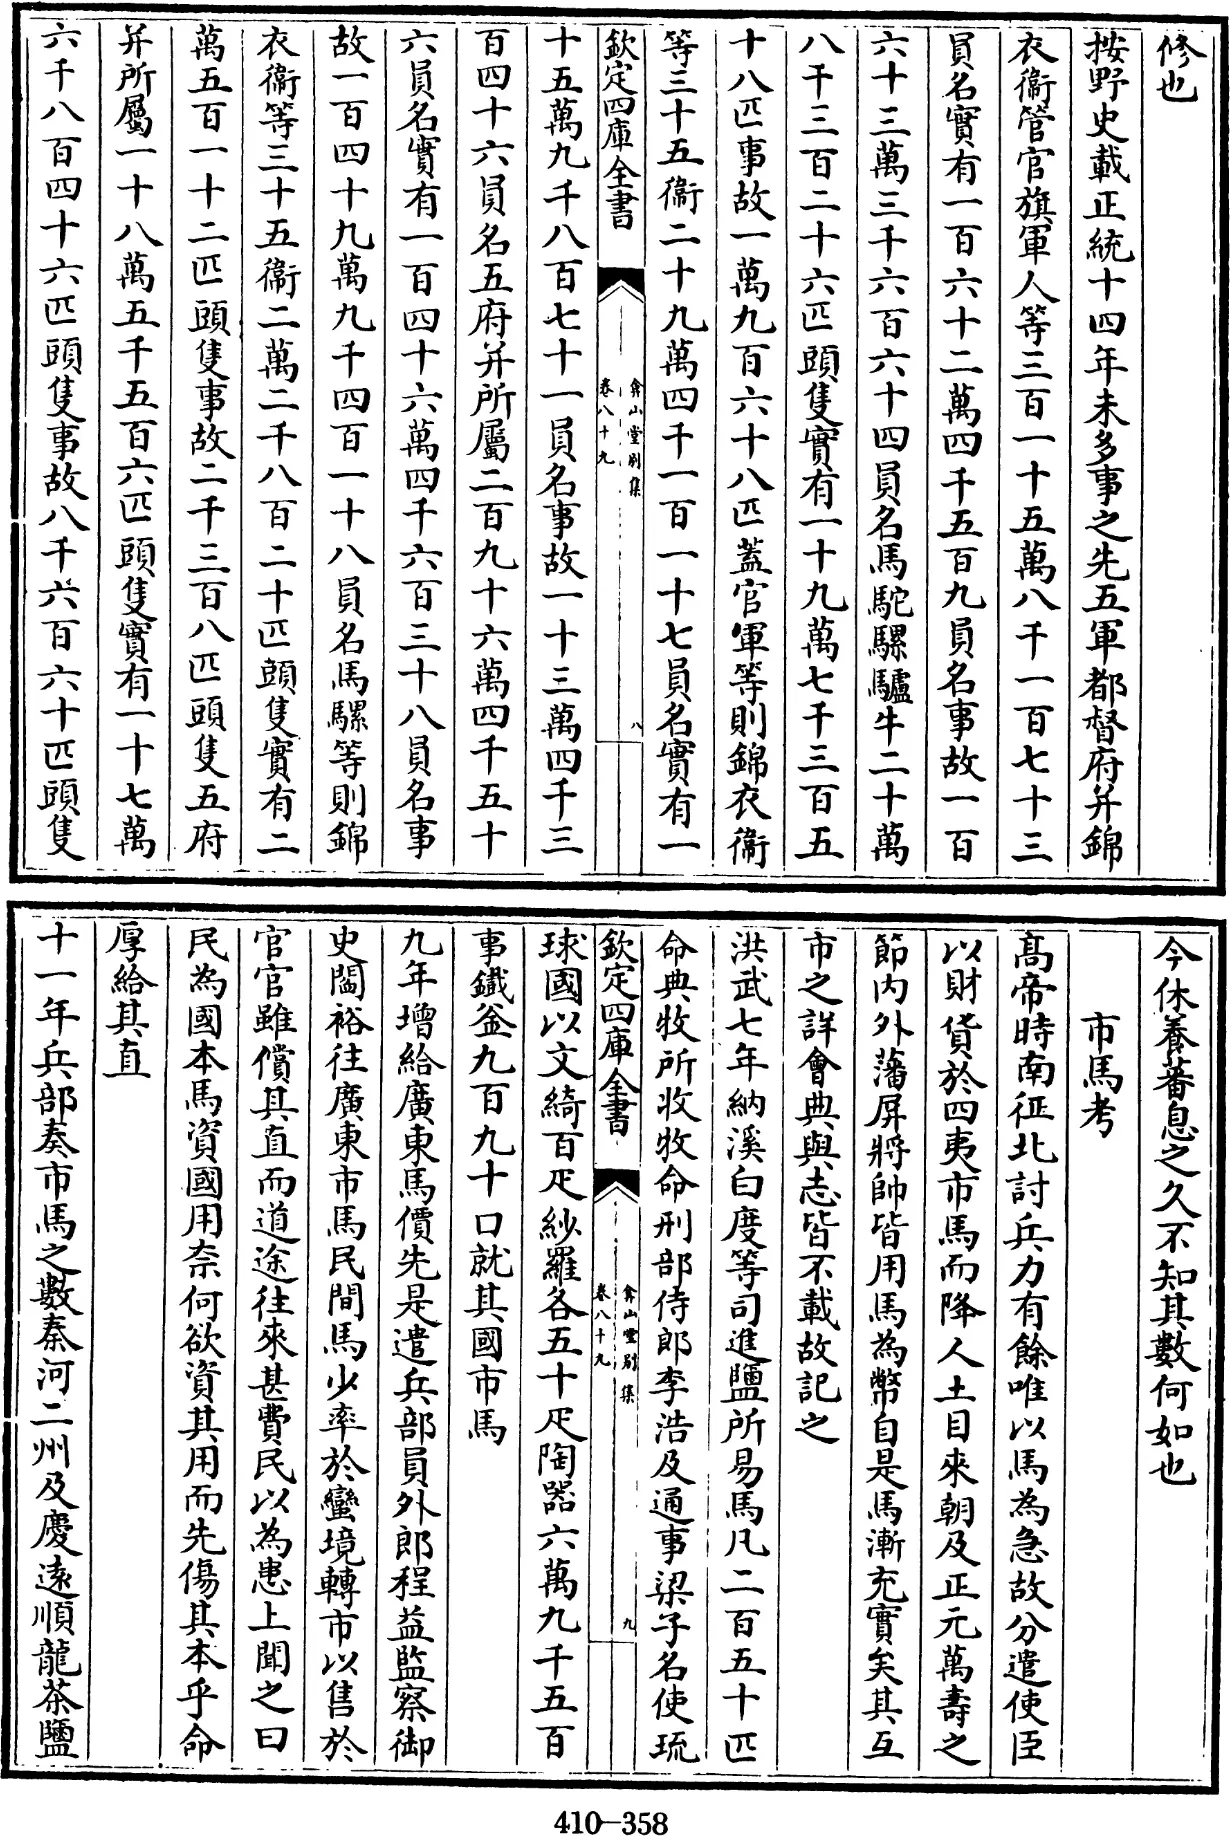 修也
按野史載正統十四年未多事之先五軍都督府并錦
衣衞管官旗軍人等三百一十五萬八千一百七十三
員名實有一百六十二萬四千五百九員名事故一百
六十三萬三千六百六十四員名馬駝騾驢牛二十萬
八千三百二十六匹頭隻實有一十九萬七千三百五
十八匹事故一萬九百六十八匹蓋官軍等則錦衣衞
等三十五衞二十九萬四千一百一十七員名實有一
欽定四庫全書
弇山堂别集
卷八十九
八
十五萬九千八百七十一員名事故一十三萬四千三
百四十六員名五府并所屬二百九十六萬四千五十
六員名實有一百四十六萬四千六百三十八員名事
故一百四十九萬九千四百一十八員名馬騾等則錦
衣衞等三十五衞二萬二千八百二十匹頭隻實有二
萬五百一十二匹頭隻事故二千三百八匹頭隻五府
并所屬一十八萬五千五百六匹頭隻實有一十七萬
六千八百四十六匹頭隻事故八千六百六十匹頭隻
今休養蕃息之久不知其數何如也
市馬考
髙帝時南征北討兵力有餘唯以馬為急故分遣使臣
以財貨於四夷市馬而降人土目來朝及正元萬壽之
節内外藩屏將帥皆用馬為幣自是馬漸充實矣其互
市之詳會典與志皆不載故記之
洪武七年納溪白度等司進鹽所易馬凡二百五十匹
命典牧所收牧命刑部侍郎李浩及通事梁子名使琉
欽定四庫全書
弇山堂别集
卷八十九
九
球國以文綺百疋紗羅各五十疋陶器六萬九千五百
事鐵釜九百九十口就其國市馬
九年增給廣東馬價先是遣兵部員外郎程益監察御
史閻裕往廣東市馬民間馬少率於蠻境轉市以售於
官官雖償其直而道途往來甚費民以為患上聞之曰
民為國本馬資國用奈何欲資其用而先傷其本乎命
厚給其直
十一年兵部奏市馬之數秦河二州及慶逺順龍茶鹽
410-358